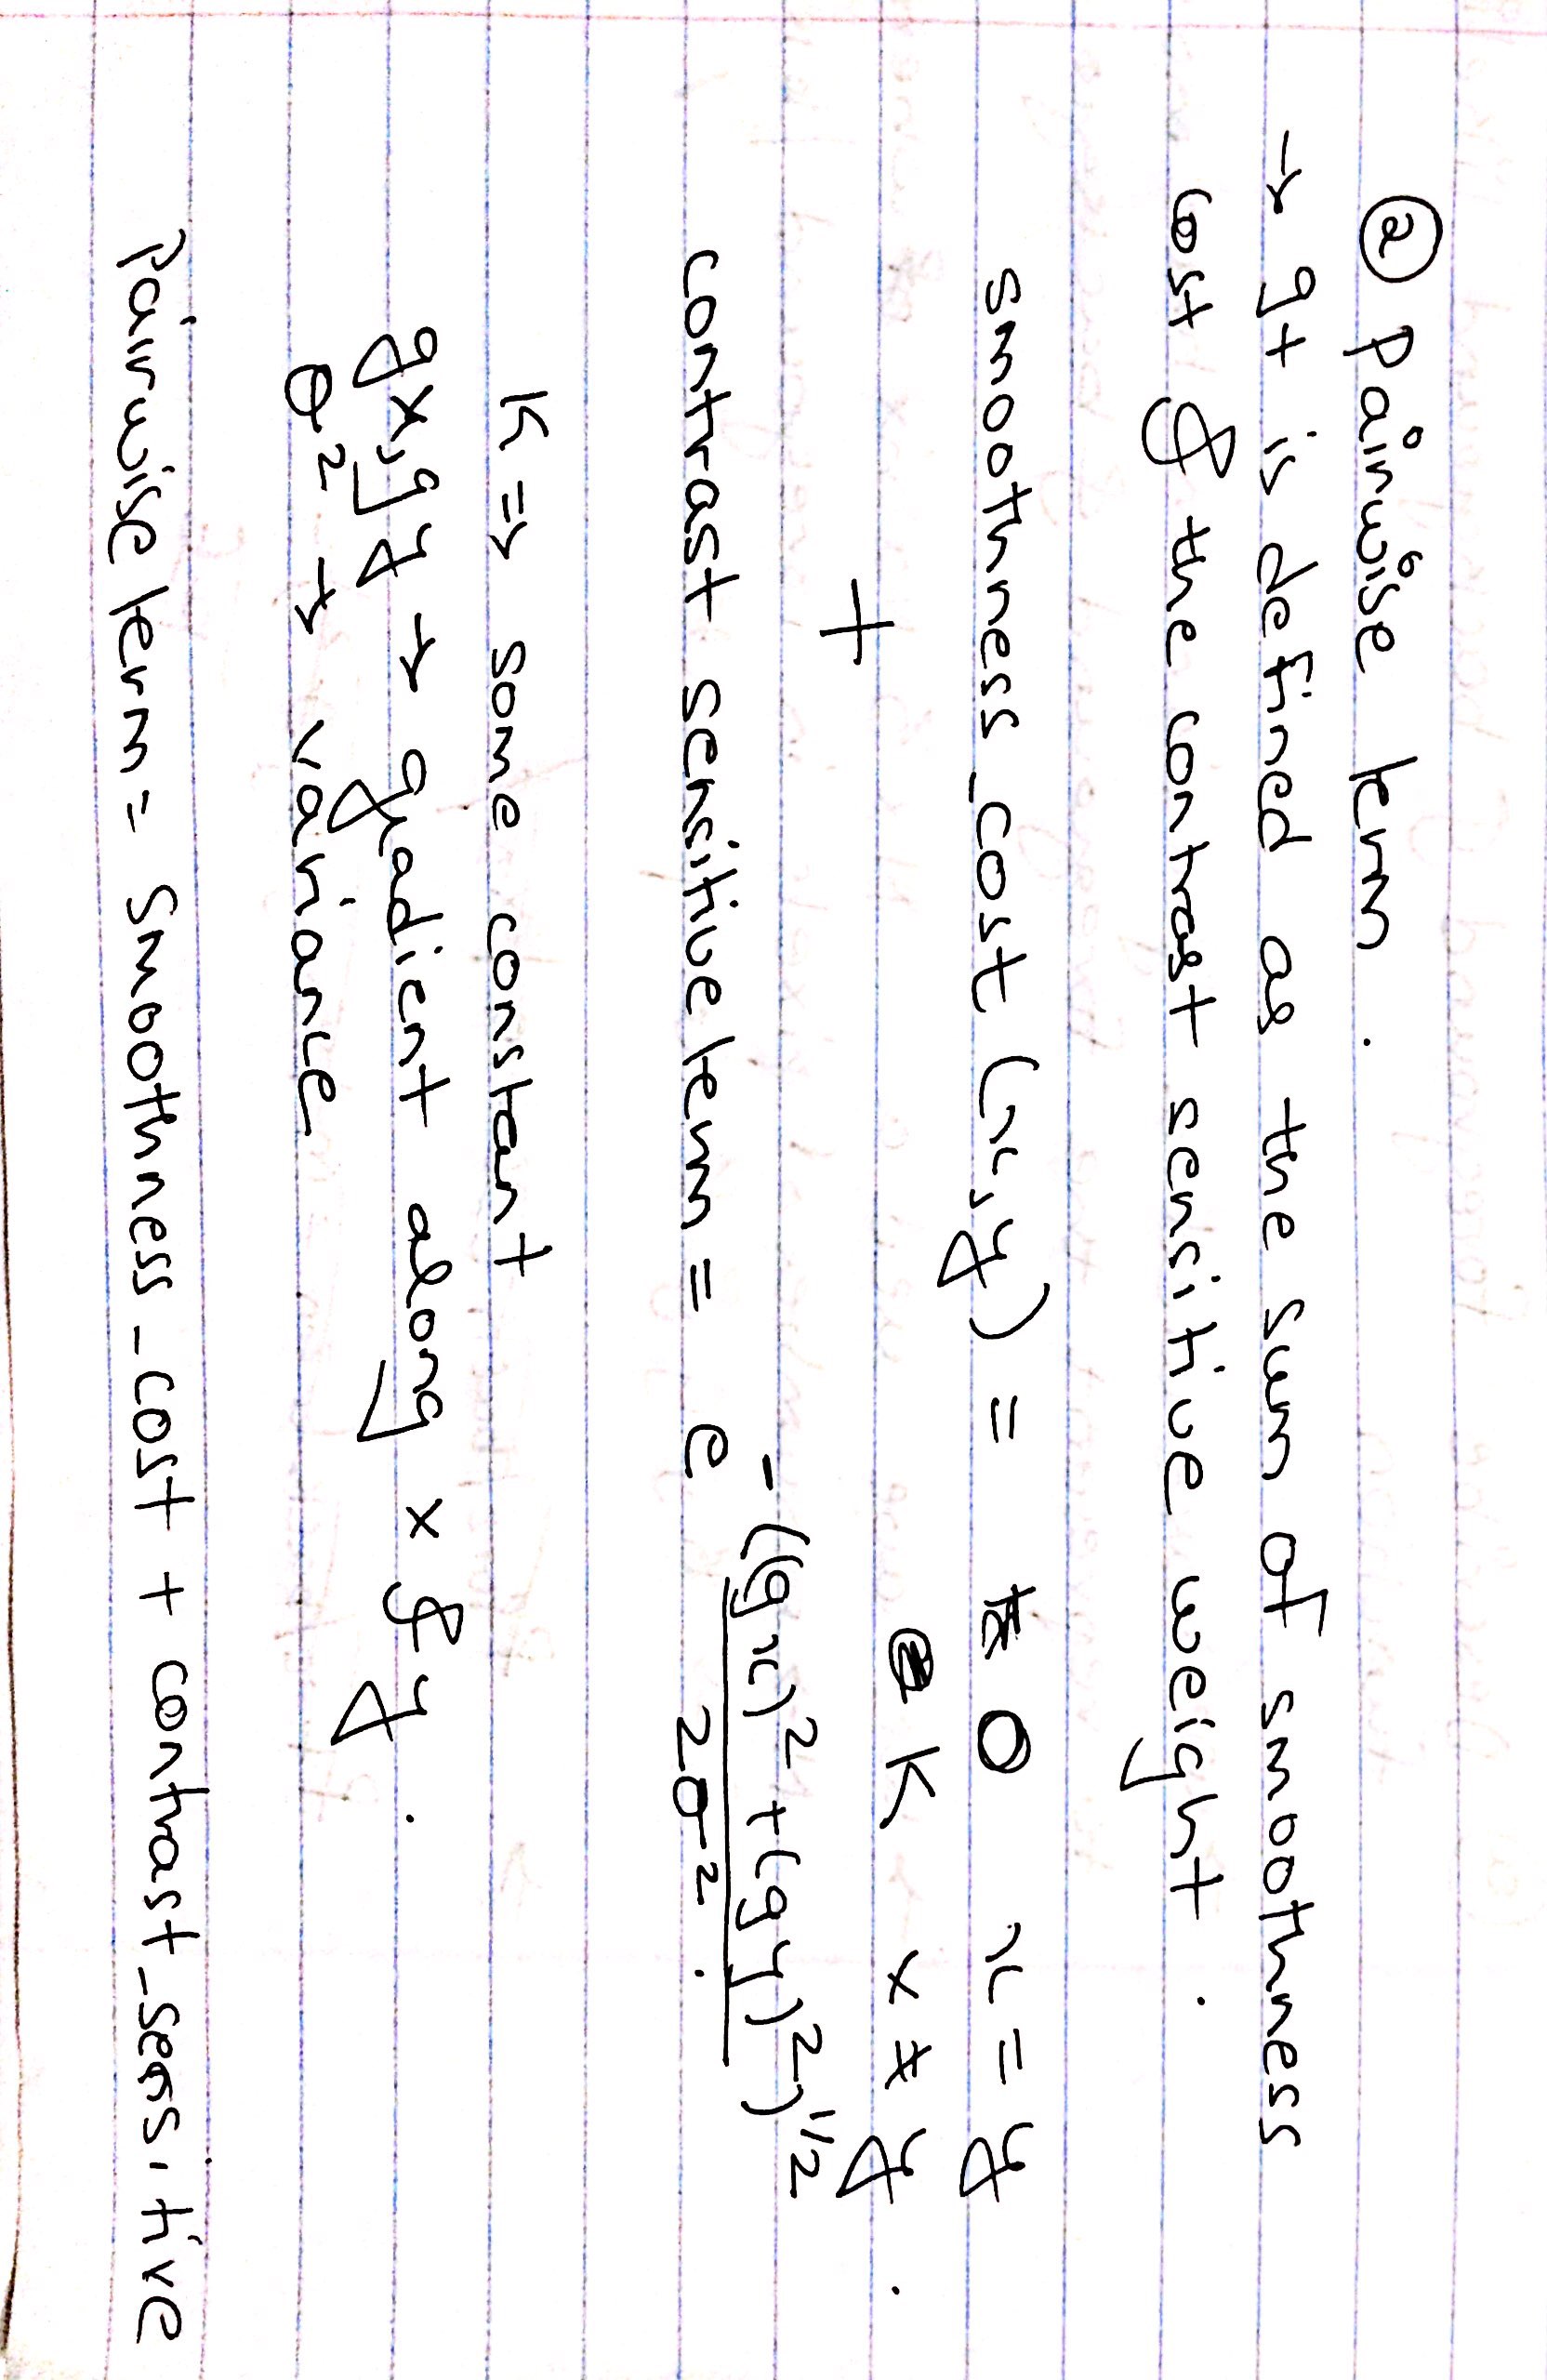 ② Pairwise term .
→ It is defined as the sum of smoothness
cost & the contrast sensitive weight .
smoothness_cost (x,y) = 0 x = y
K x ≠ y .
+
contrast sensitive term = e^{-((gx)² + (gy)²)^{1/2} / 2σ²} .
K => some constant
gx, gy → gradient along x & y .
σ² → variance
Pairwise term = smoothness_cost + contrast_sensitive